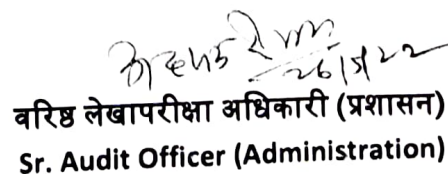 26/5/22
वरिष्ठ लेखापरीक्षा अधिकारी (प्रशासन)
Sr. Audit Officer (Administration)